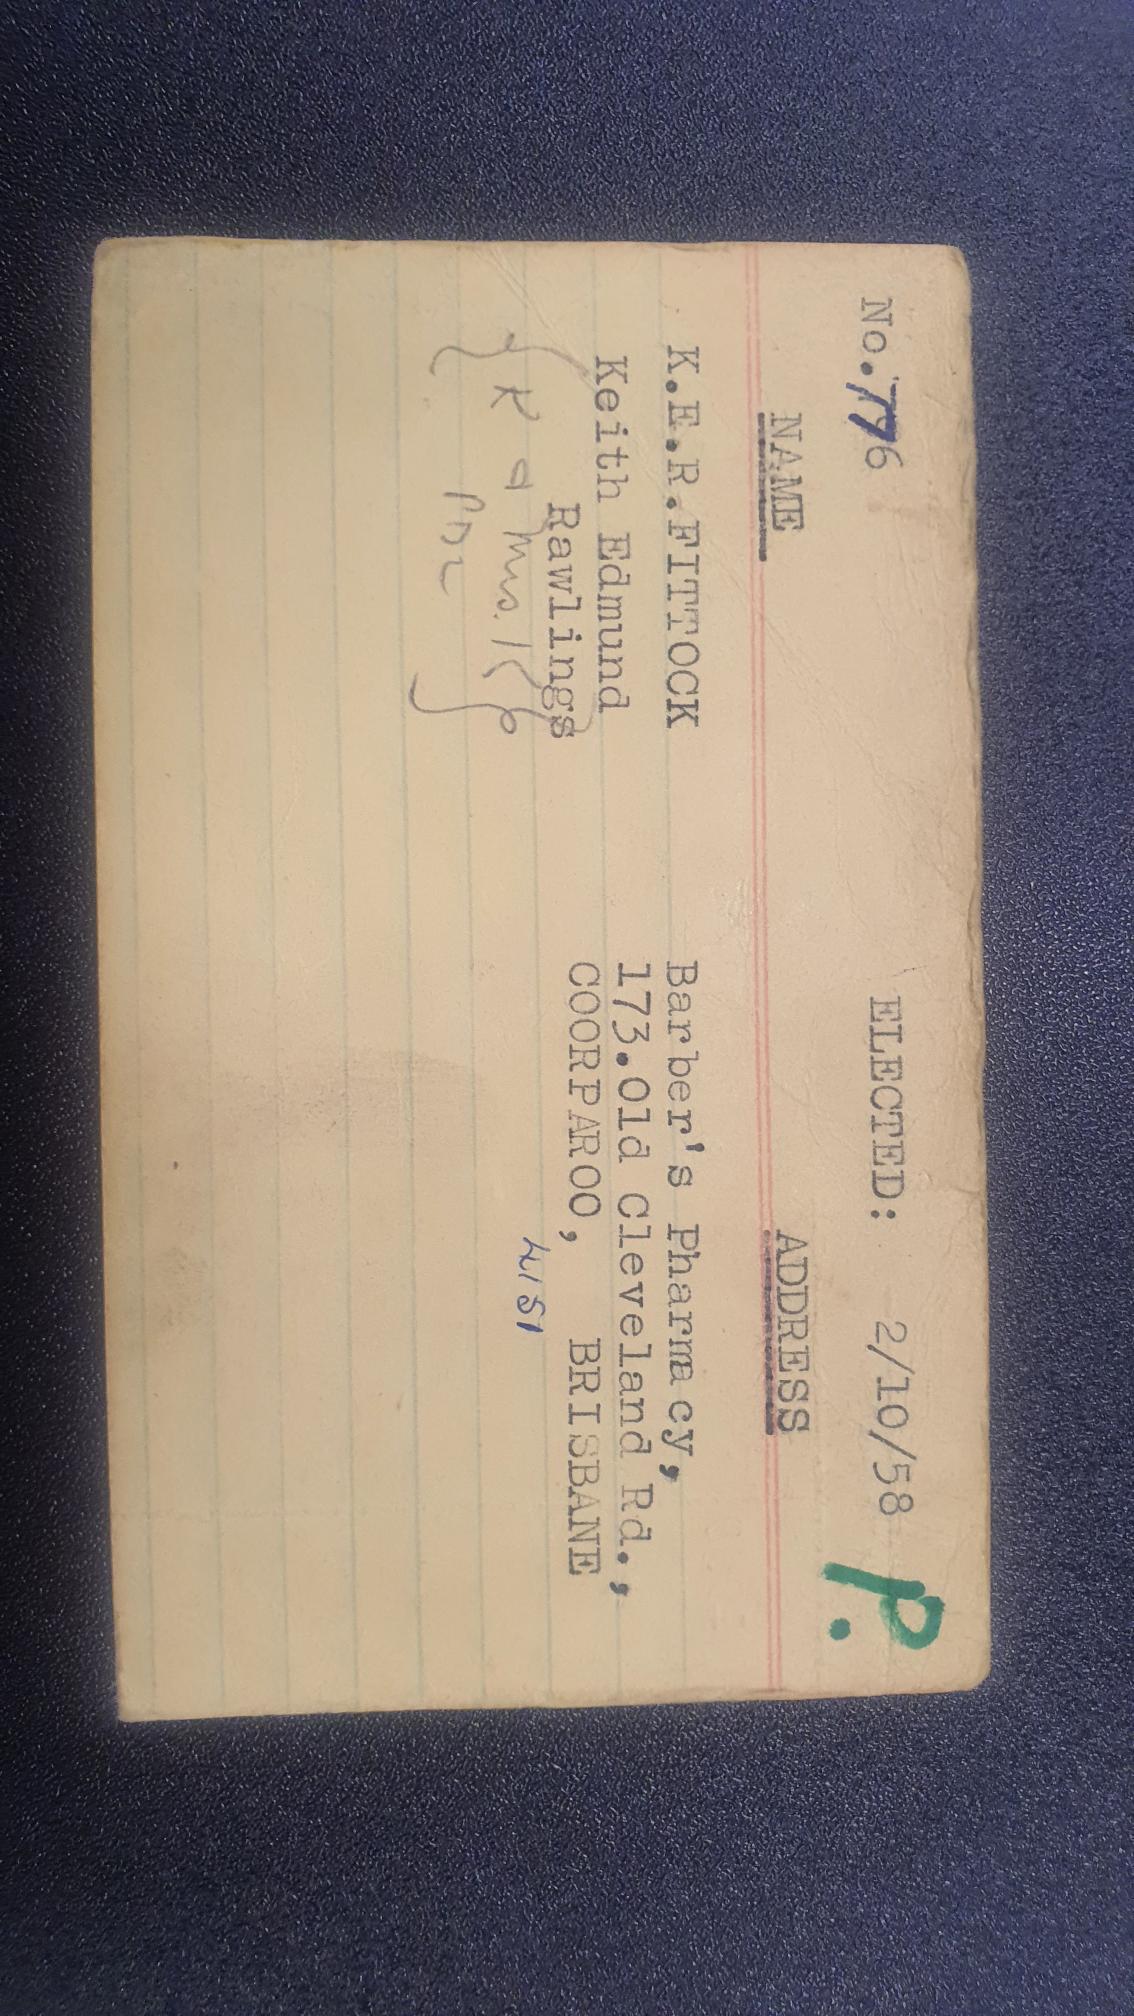 No.776 ELECTED: 2/10/58 P.
NAME ADDRESS
K.E.R.FITTOCK Barber's Pharmacy,
Keith Edmund 173.Old Cleveland Rd.,
Rawlings COORPAROO, BRISBANE
4151